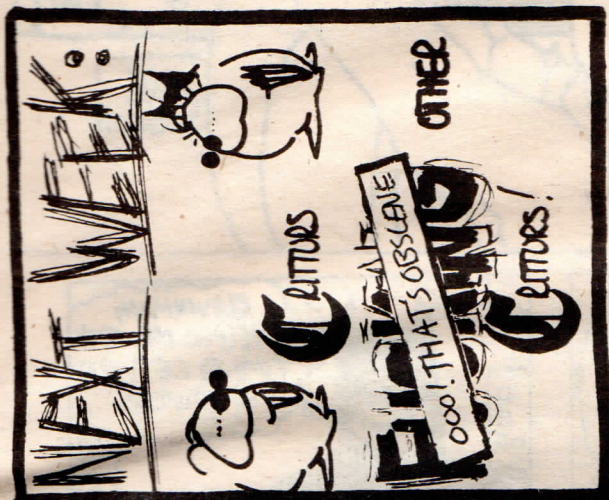 NEXT WEEK:
CRITTURS
OOO! THAT'S OBSCENE
OTHER
CRITTURS!